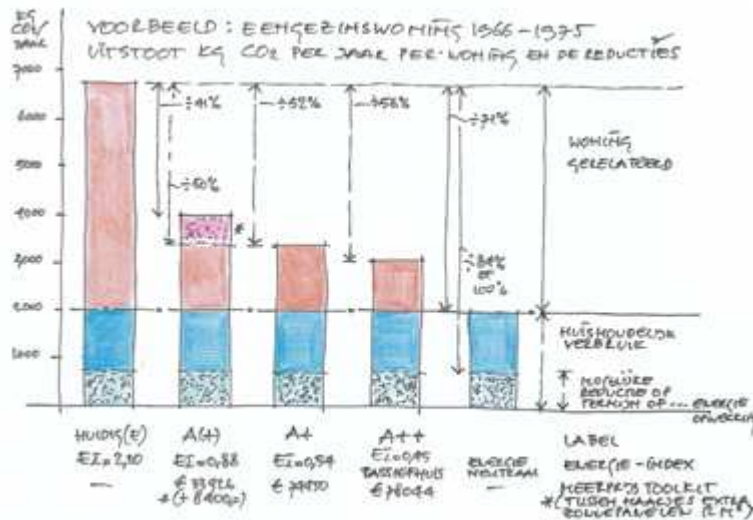 KG
CO2/
JAAR
VOORBEELD: EENGEZINSWONING 1966-1975
UITSTOOT KG CO2 PER JAAR PER WONING EN DE REDUCTIES
7000
6000
5000
4000
3000
2000
1000
÷41%
÷50%
÷52%
÷71%
OF
100%
*
WONING
GERELATEERD
HUISHOUDELIJK
VERBRUIK
MOGELIJKE
REDUCTIE OF
TERMIJN OF ... ENERGIE
OPWEKKING
HUIDIG(E)
—
A(+)
EI=0,88
A+
A++
PASSIEFHUIS
ENERGIE
NEUTRAAL
—
LABEL
ENERGIE-INDEX
MEERPRIJS TOOLKIT
*(TUSSEN HAAKJES EXTRA
ZONNEPANELEN